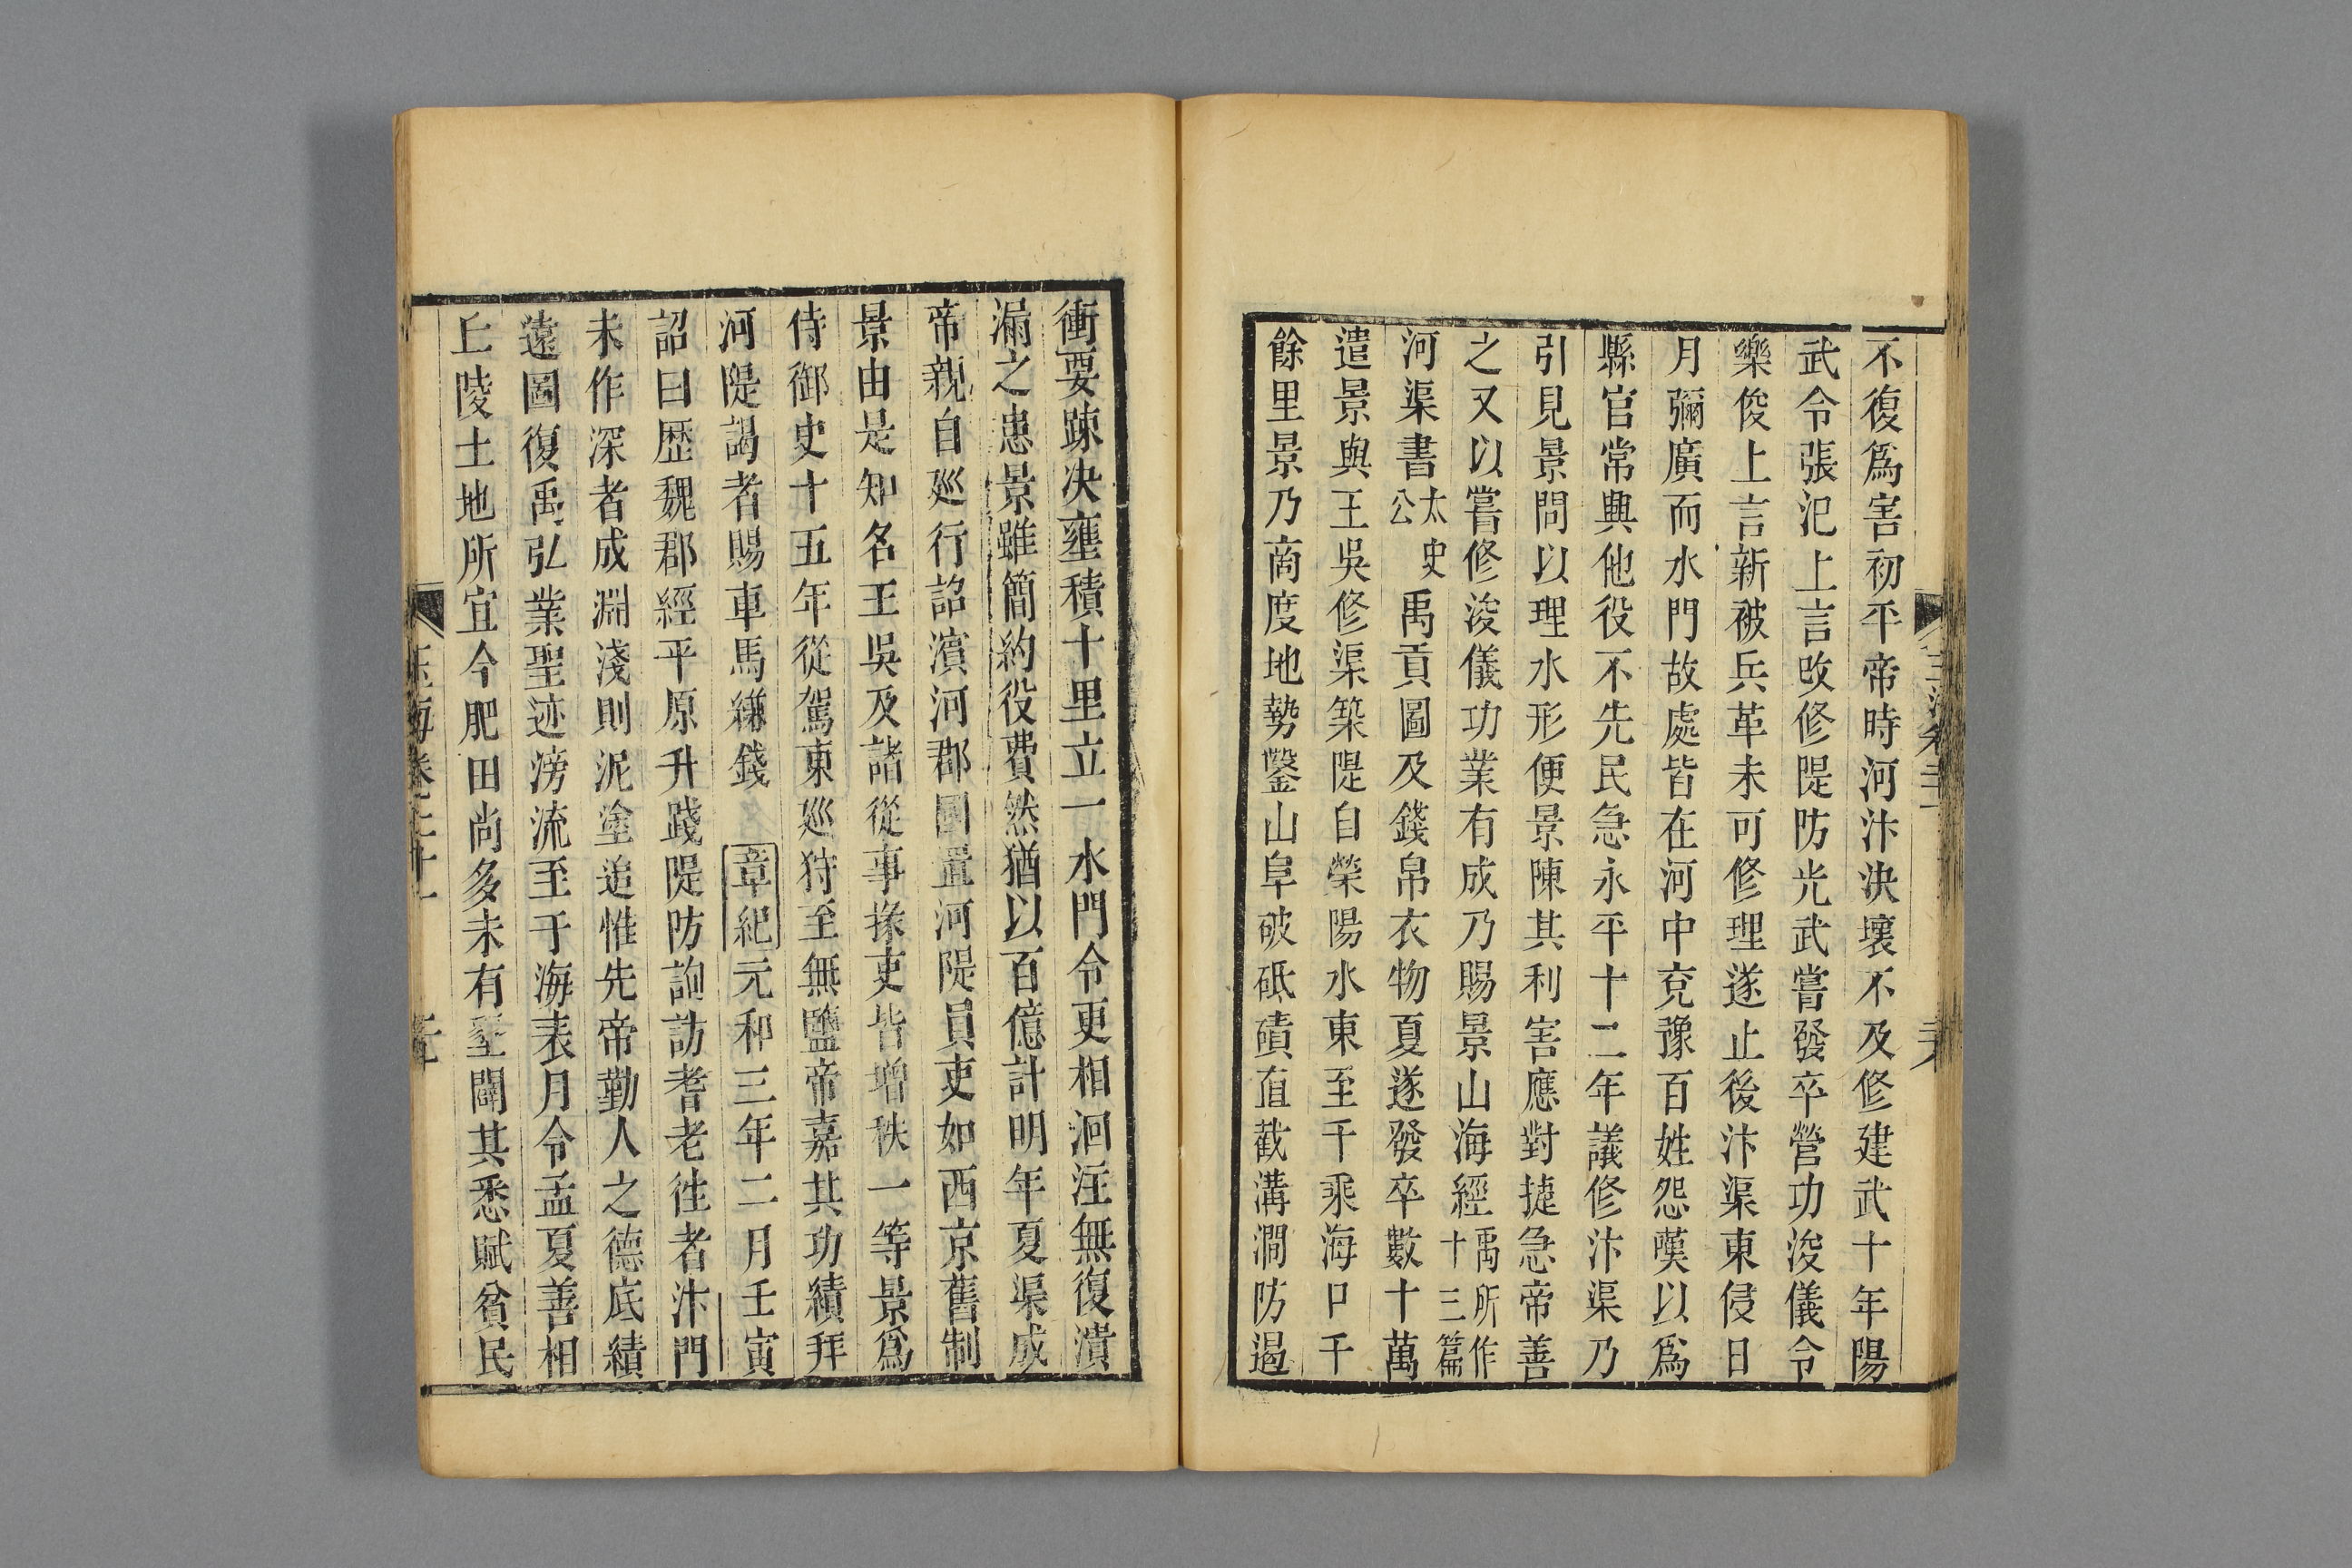 不復爲害初平帝時河汴決壞不及修建武十年陽
武令張汜上言改修隄防光武嘗發卒營功浚儀令
樂俊上言新被兵革未可修理遂止後汴渠東侵日
月彌廣而水門故處皆在河中兗豫百姓怨嘆以爲
縣官常興他役不先民急永平十二年議修汴渠乃
引見景問以理水形便景陳其利害應對捷急帝善
之又以嘗修浚儀功業有成乃賜景山海經禹所作十三篇
河渠書太史公禹貢圖及錢帛衣物夏遂發卒數十萬
遣景與王吳修渠築隄自滎陽水東至千乘海口千
餘里景乃商度地勢鑿山阜破砥磧直截溝澗防遏
衝要踈决壅積十里立一水門令更相洄注無復潰
漏之患景雖簡約役費然猶以百億計明年夏渠成
帝親自巡行詔濱河郡國置河隄員吏如西京舊制
景由是知名王吳及諸從事掾吏皆增秩一等景爲
侍御史十五年從駕東巡狩至無鹽帝嘉其功績拜
河隄謁者賜車馬縑錢 章紀元和三年二月壬寅
詔曰歷魏郡經平原升踐隄防詢訪耆老徃者汴門
未作深者成淵淺則泥塗追惟先帝勤人之德底績
遠圖復禹弘業聖迹滂流至于海表月令孟夏善相
丘陵土地所宜今肥田尚多未有墾闢其悉賦貧民